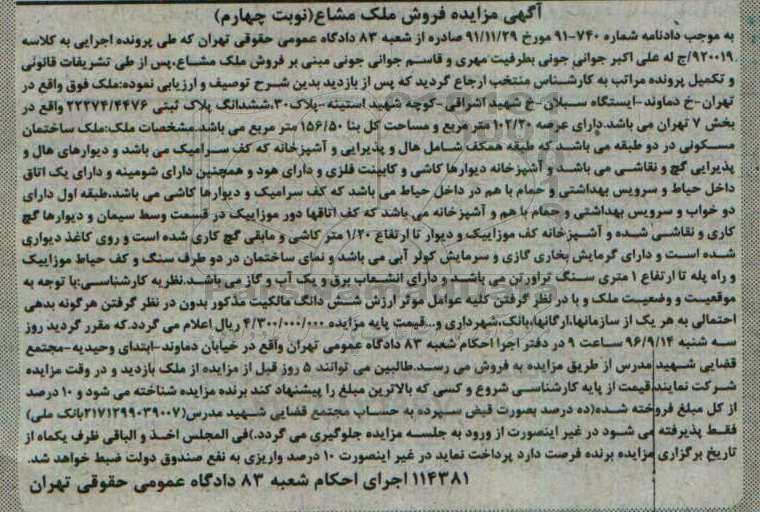 آگهی مزایده فروش ملک مشاع(نوبت چهارم)
به موجب دادنامه شماره ۷۴۰-۹۱ مورخ ۹۱/۱۱/۲۹ صادره از شعبه ۸۳ دادگاه عمومی حقوقی تهران که طی پرونده اجرایی به کلاسه
۹۲۰۰۱۹/ج له علی اکبر جوانی جونی بطرفیت مهری و قاسم جوانی جونی مبنی بر فروش ملک مشاع،پس از طی تشریفات قانونی
و تکمیل پرونده مراتب به کارشناس منتخب ارجاع گردید که پس از بازدید بدین شرح توصیف و ارزیابی نموده:ملک فوق واقع در
تهران-خ دماوند-ایستگاه سبلان-خ شهید اشراقی-کوچه شهید استینه-پلاک۳۰،ششدانگ پلاک ثبتی ۲۲۲۷۴/۴۴۷۶ واقع در
بخش ۷ تهران می باشد.دارای عرصه ۱۰۲/۲۰ متر مربع و مساحت کل بنا ۱۵۶/۵۰ متر مربع می باشد.مشخصات ملک:ملک ساختمان
مسکونی در دو طبقه می باشد که طبقه همکف شامل هال و پذیرایی و آشپزخانه که کف سرامیک می باشد و دیوارهای هال و
پذیرایی گچ و نقاشی می باشد و آشپزخانه دیوارها کاشی و کابینت فلزی و دارای هود و همچنین دارای شومینه و دارای یک اتاق
داخل حیاط و سرویس بهداشتی و حمام با هم در داخل حیاط می باشد که کف سرامیک و دیوارها کاشی می باشد،طبقه اول دارای
دو خواب و سرویس بهداشتی و حمام با هم و آشپزخانه می باشد که کف اتاقها دور موزاییک در قسمت وسط سیمان و دیوارها گچ
کاری و نقاشی شده و آشپزخانه کف موزاییک و دیوار تا ارتفاع ۱/۲۰ متر کاشی و مابقی گچ کاری شده است و روی کاغذ دیواری
شده است و دارای گرمایش بخاری گازی و سرمایش کولر آبی می باشد و نمای ساختمان در دو طرف سنگ و کف حیاط موزاییک
و راه پله تا ارتفاع ۱ متری سنگ تراورتن می باشد و دارای انشعاب برق و یک آب و گاز می باشد.نظریه کارشناسی:با توجه به
موقعیت و وضعیت ملک و با در نظر گرفتن کلیه عوامل موثر ارزش شش دانگ مالکیت مذکور بدون در نظر گرفتن هرگونه بدهی
احتمالی به هر یک از سازمانها،ارگانها،بانک،شهرداری و...قیمت پایه مزایده ۴/۳۰۰/۰۰۰/۰۰۰ ریال اعلام می گردد.که مقرر گردید روز
سه شنبه ۹۶/۹/۱۴ ساعت ۹ در دفتر اجرا احکام شعبه ۸۳ دادگاه عمومی تهران واقع در خیابان دماوند-ابتدای وحیدیه-مجتمع
قضایی شهید مدرس از طریق مزایده به فروش می رسد.طالبین می توانند ۵ روز قبل از مزایده از ملک بازدید و در وقت مزایده
شرکت نمایند.قیمت از پایه کارشناسی شروع و کسی که بالاترین مبلغ را پیشنهاد کند برنده مزایده شناخته می شود و ۱۰ درصد
از کل مبلغ فروخته شده(ده درصد بصورت قبض سپرده به حساب مجتمع قضایی شهید مدرس(۲۱۷۱۲۹۹۰۳۹۰۰۷بانک ملی)
فقط پذیرفته می شود در غیر اینصورت از ورود به جلسه مزایده جلوگیری می گردد.)فی المجلس اخذ و الباقی ظرف یکماه از
تاریخ برگزاری مزایده برنده فرصت دارد پرداخت نماید در غیر اینصورت ۱۰ درصد واریزی به نفع صندوق دولت ضبط خواهد شد.
۱۱۴۳۸۱ اجرای احکام شعبه ۸۳ دادگاه عمومی حقوقی تهران